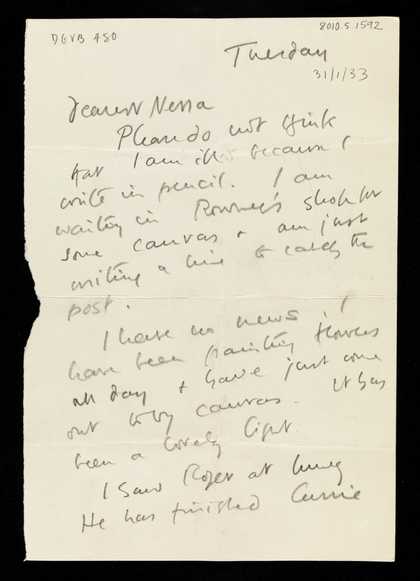 DGVB 450
8010.5.1592
Tuesday
31/1/33
Dearest Nessa
Please do not think
that I am ill because I
write in pencil. I am
waiting in Rowney's shop for
some canvas & am just
writing a line to catch the
post.
I have no news. I
have been painting flowers
all day & have just come
out to buy canvas. It has
been a lovely light.
I saw Roger at lunch
He has finished